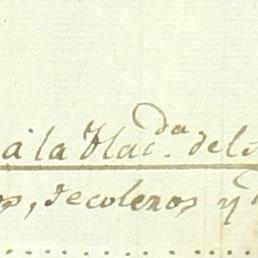 à la Hac.da del
os, decolexos y